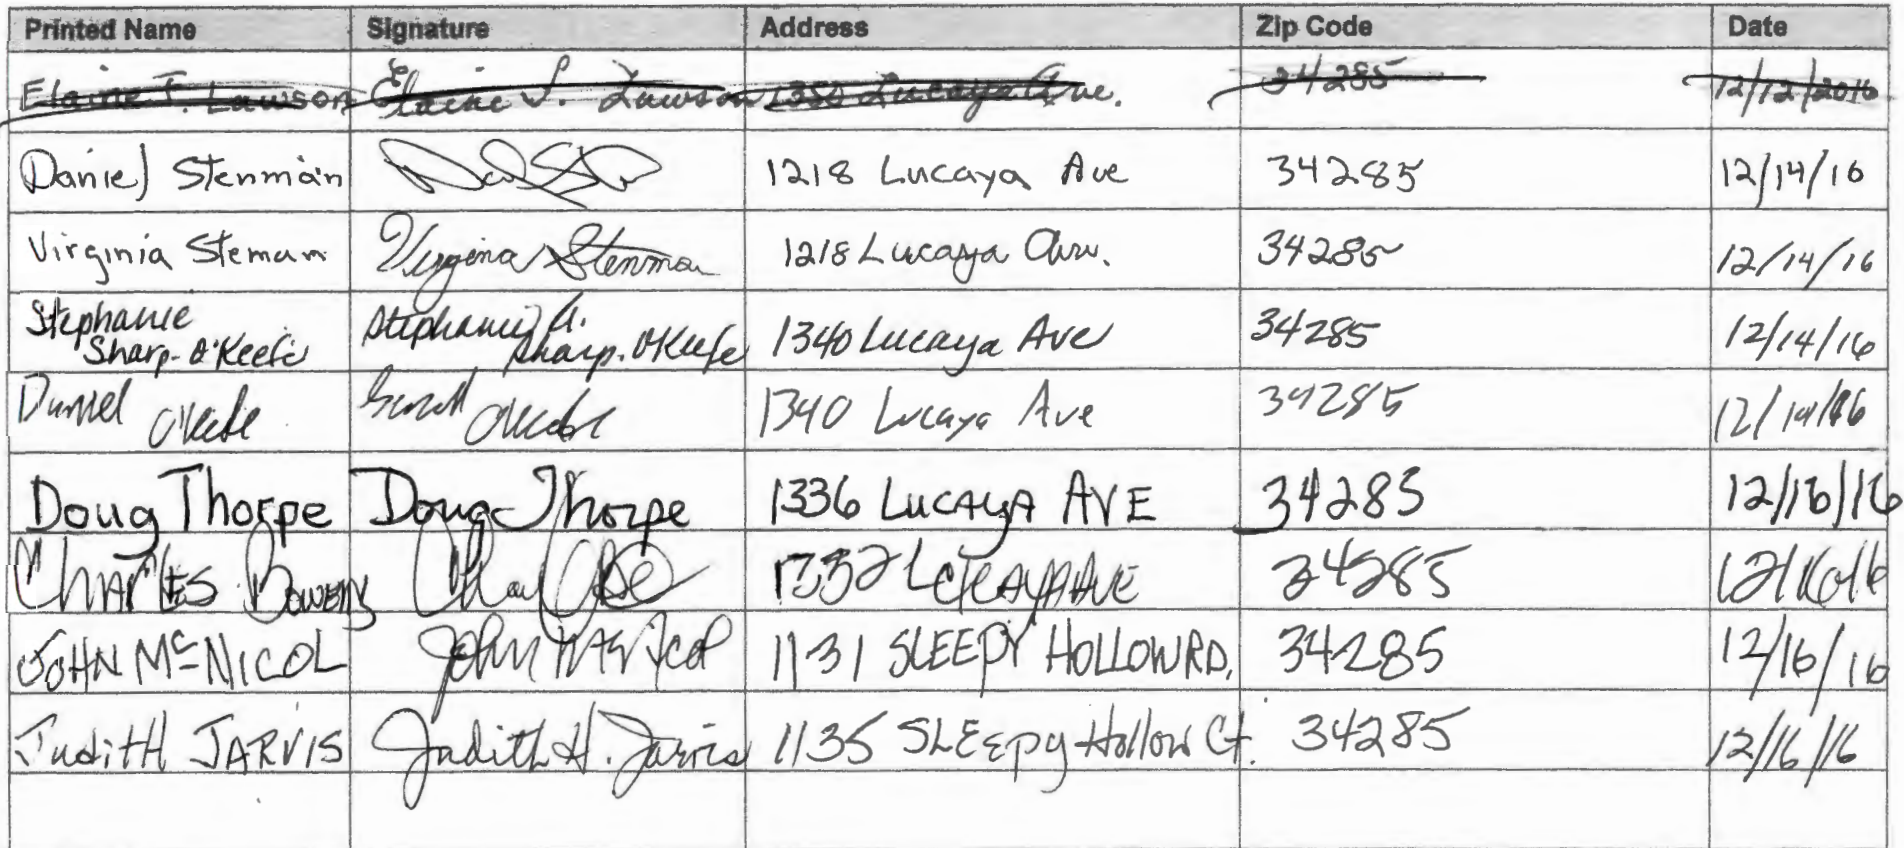 Printed Name Signature Address Zip Code Date
Elaine T. Lawson Elaine T. Lawson 1350 Lucaya Ave. 34285 12/12/2016
Daniel Stenman 1218 Lucaya Ave 34285 12/14/16
Virginia Steman Virginia Stenman 1218 Lucaya Ave. 34285 12/14/16
Stephanie Stephanie A.
Sharp-O'Keefe Sharp-O'Keefe 1340 Lucaya Ave 34285 12/14/16
Daniel O'Keefe O'Keefe 1340 Lucaya Ave 34285 12/14/16
Doug Thorpe Doug Thorpe 1336 LUCAYA AVE 34285 12/16/16
CHARLES BOWERS 1332 LUCAYA AVE 34285 12/16/16
JOHN McNICOL John McNicol 1131 SLEEPY HOLLOW RD. 34285 12/16/16
JuditH JARVIS Judith H. Jarvis 1135 SLEepy Hollow Ct. 34285 12/16/16